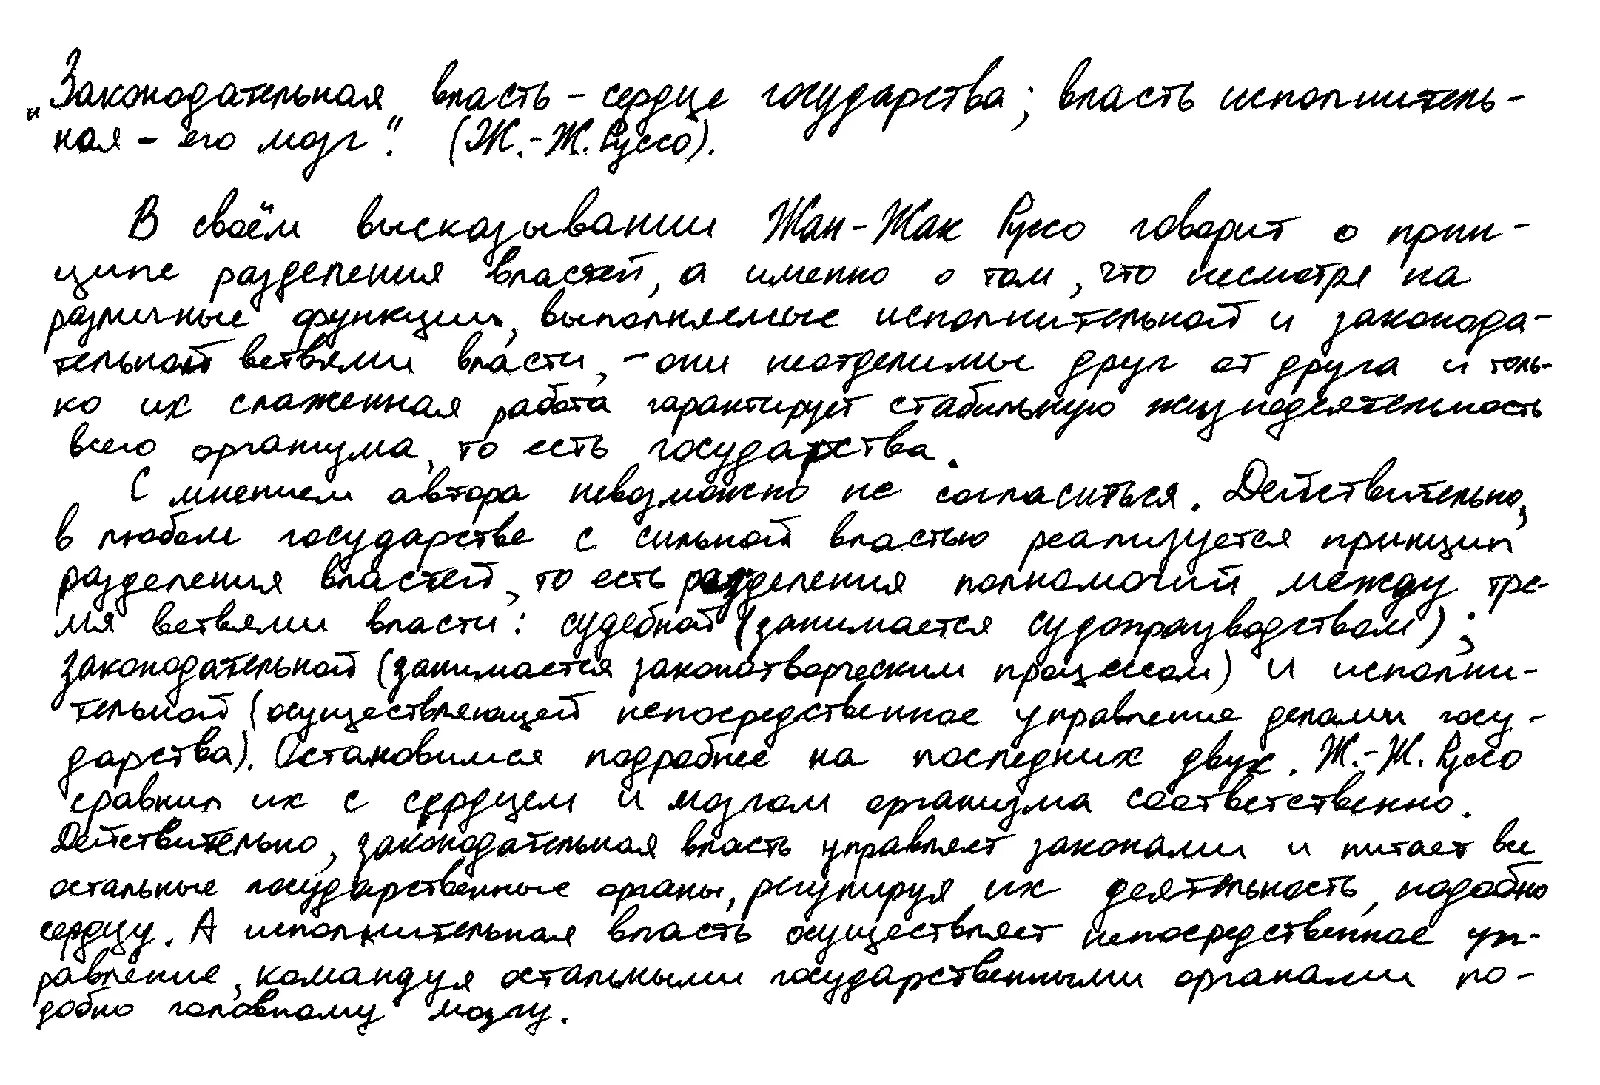 „Законодательная власть – сердце государства; власть исполнитель-
ная – его мозг". (Ж.-Ж. Руссо).
В своём высказывании Жан-Жак Руссо говорит о прин-
ципе разделения властей, а именно о том, что несмотря на
различные функции, выполняемые исполнительной и законода-
тельной ветвями власти, – они неотделимы друг от друга и толь-
ко их слаженная работа гарантирует стабильную жизнедеятельность
всего организма, то есть государства.
С мнением автора невозможно не согласиться. Действительно,
в любом государстве с сильной властью реализуется принцип
разделения властей, то есть разделения полномочий между тре-
мя ветвями власти: судебной (занимается судопроизводством);
законодательной (занимается законотворческим процессом) и исполни-
тельной (осуществляющей непосредственное управление делами госу-
дарства). Остановимся подробнее на последних двух. Ж.-Ж. Руссо
сравнил их с сердцем и мозгом организма соответственно.
Действительно, законодательная власть управляет законами и питает все
остальные государственные органы, регулируя их деятельность, подобно
сердцу. А исполнительная власть осуществляет непосредственное уп-
равление, командуя остальными государственными органами по-
добно головному мозгу.